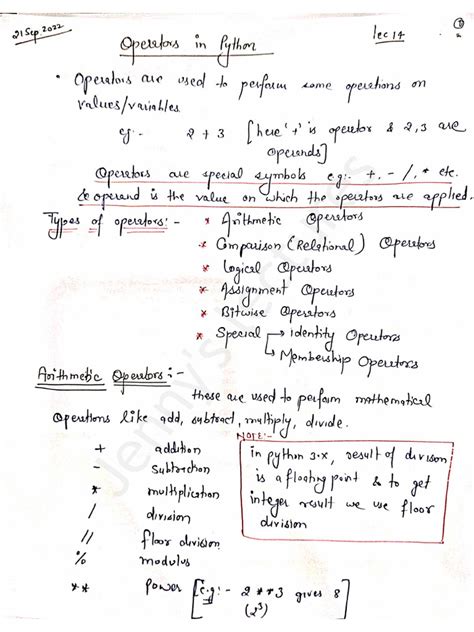 21 Sep. 2022
lec 14
Operators in Python
• Operators are used to perform some operations on
values/variables
eg:- 2 + 3 [here '+' is operator & 2,3 are
operends]
Operators are special symbols e.g:- +, - /, * etc.
& operand is the value on which the operators are applied.
Types of operators:- * Arithmetic Operators
* Comparison (Relational) Operators
* Logical Operators
* Assignment Operators
* Bitwise Operators
* Special → Identity Operators
→ Membership Operators
Arithmetic Operators:-
these are used to perform mathematical
Operations like add, subtract, multiply, divide.
NOTE:-
in python 3.x, result of division
is a floating point & to get
integer result we use floor
division
+ addition
- Subtraction
* multiplication
/ division
// floor division
% modulus
** Power [e.g:- 2 ** 3 gives 8]
(2³)
Jenny's Lectures